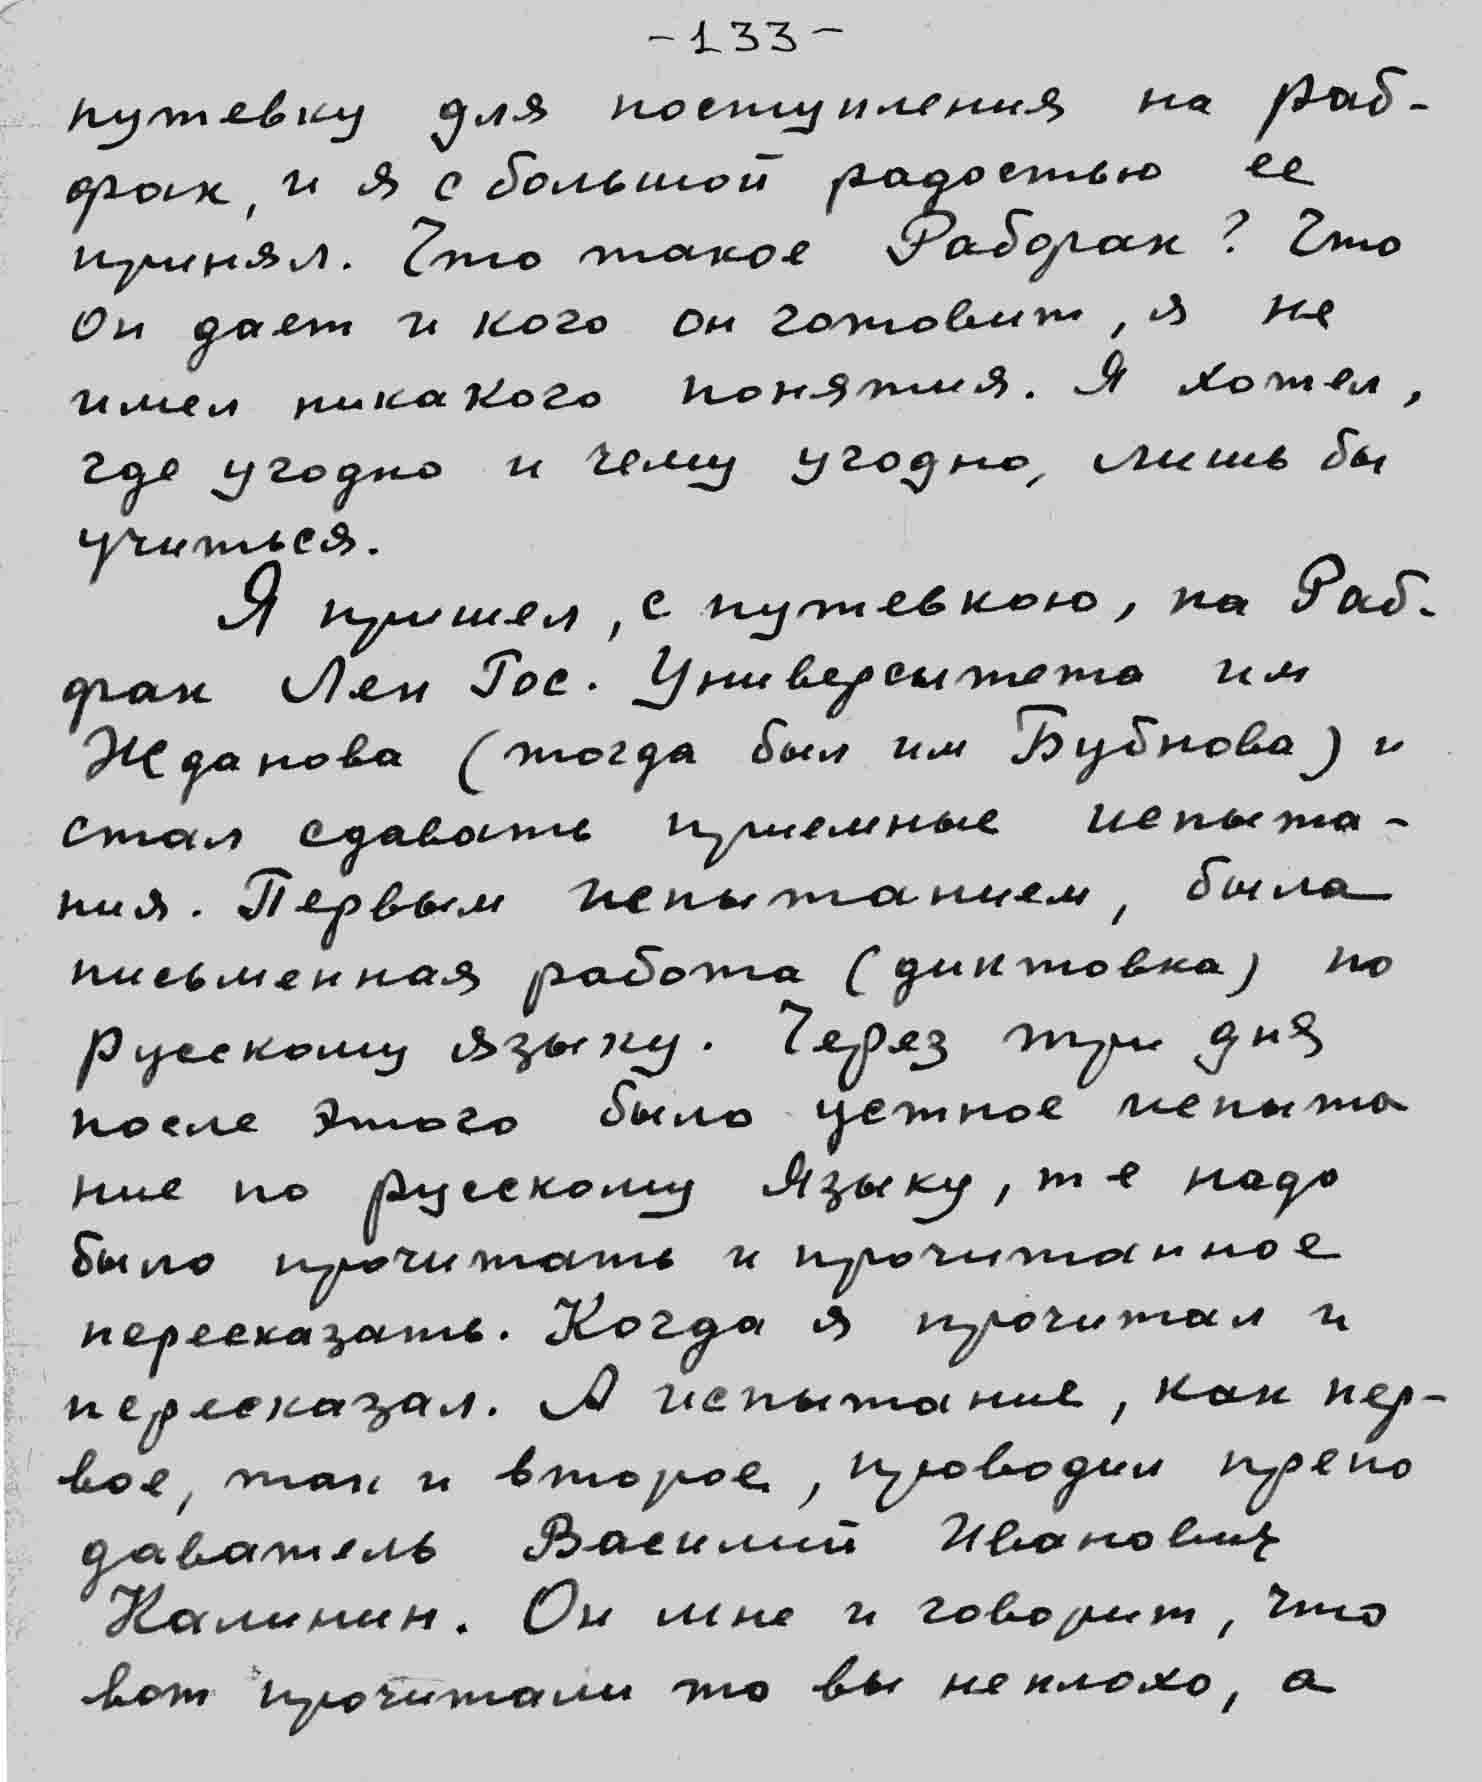 -133-
путевку для поступления на раб-
фак, и я с большой радостью ее
принял. Что такое Рабфак? Что
Он дает и кого он готовит, я не
имел никакого понятия. Я хотел,
где угодно и чему угодно, лишь бы
учиться.
Я пришел, с путевкою, на Раб-
фак Лен Гос. Университета им
Жданова (тогда был им Бубнова) и
стал сдавать приемные испыта-
ния. Первым испытанием, была
письменная работа (диктовка) по
русскому языку. Через три дня
после этого было устное испыта
ние по русскому языку, т е надо
было прочитать и прочитанное
пересказать. Когда я прочитал и
пересказал. А испытание, как пер-
вое, так и второе, проводил препо
даватель Василий Иванович
Калинин. Он мне и говорит, что
вот прочитали то вы неплохо, а